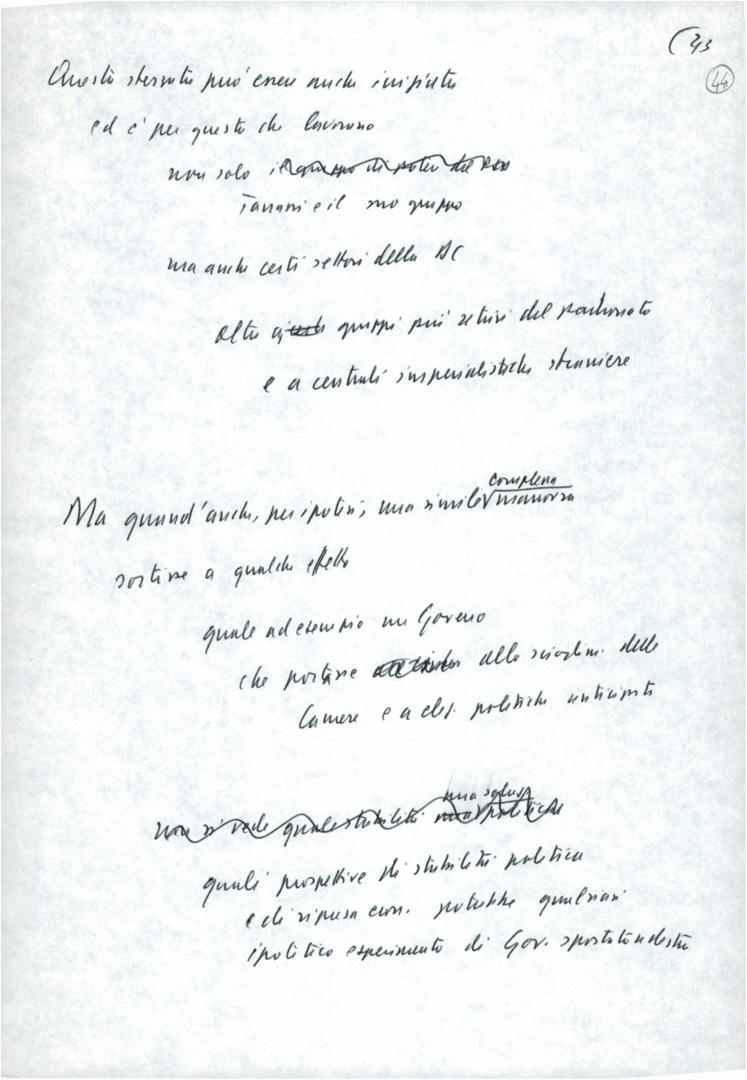 43
44
Questa sterzata può essere anche
ed è per questo che lavorano
non solo il gruppo di potere del PSDI
Tanassi e il suo gruppo
ma anche certi settori della DC
altri gruppi più retrivi del padronato
e a centrali imperialistiche straniere
complessa
Ma quand'anche, per ipotesi, una simile manovra
sortisse a qualche effetto
quale ad esempio un Governo
che portasse allo scioglim. delle
Camere e a elez. politiche anticipate
una soluz.
non si vede quale stabilità politica
quali prospettive di stabilità politica
e di ripresa econ. potrebbe qualsiasi
ipotetico esperimento di Gov. spostato a destra